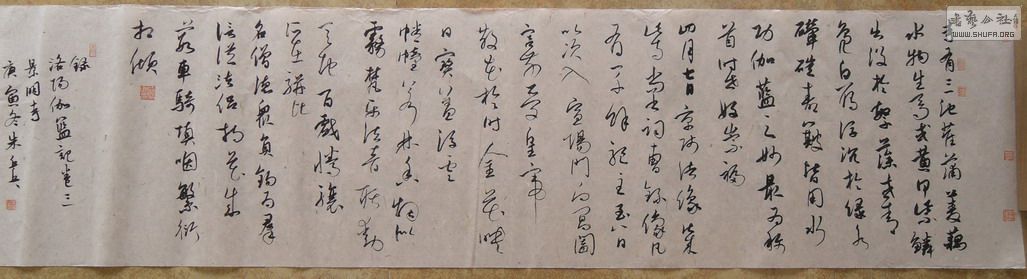 寺有三池萑蒲菱藕
水物生焉或黄甲紫鳞
出没於繁藻或青
凫白雁浮沉於绿水
硙舂簸皆用水
功伽蓝之妙最为称
首时好崇福
四月七日京师诸像皆来
此寺尚书祠曹录像凡
有一千馀躯至八日
以次入宣阳门向阊阖
宫前受皇帝
散花於时金花映
日宝盖浮云
幡幢若林香烟似
雾梵乐法音聒动
天地百戏腾骧
所在骈比
名僧德众负锡为群
信徒法侣持花成
薮车骑填咽繁衍
相倾
录
洛阳伽蓝记卷三
景明寺
庚寅冬朱兵
书艺公社
WWW.SHUFA.ORG